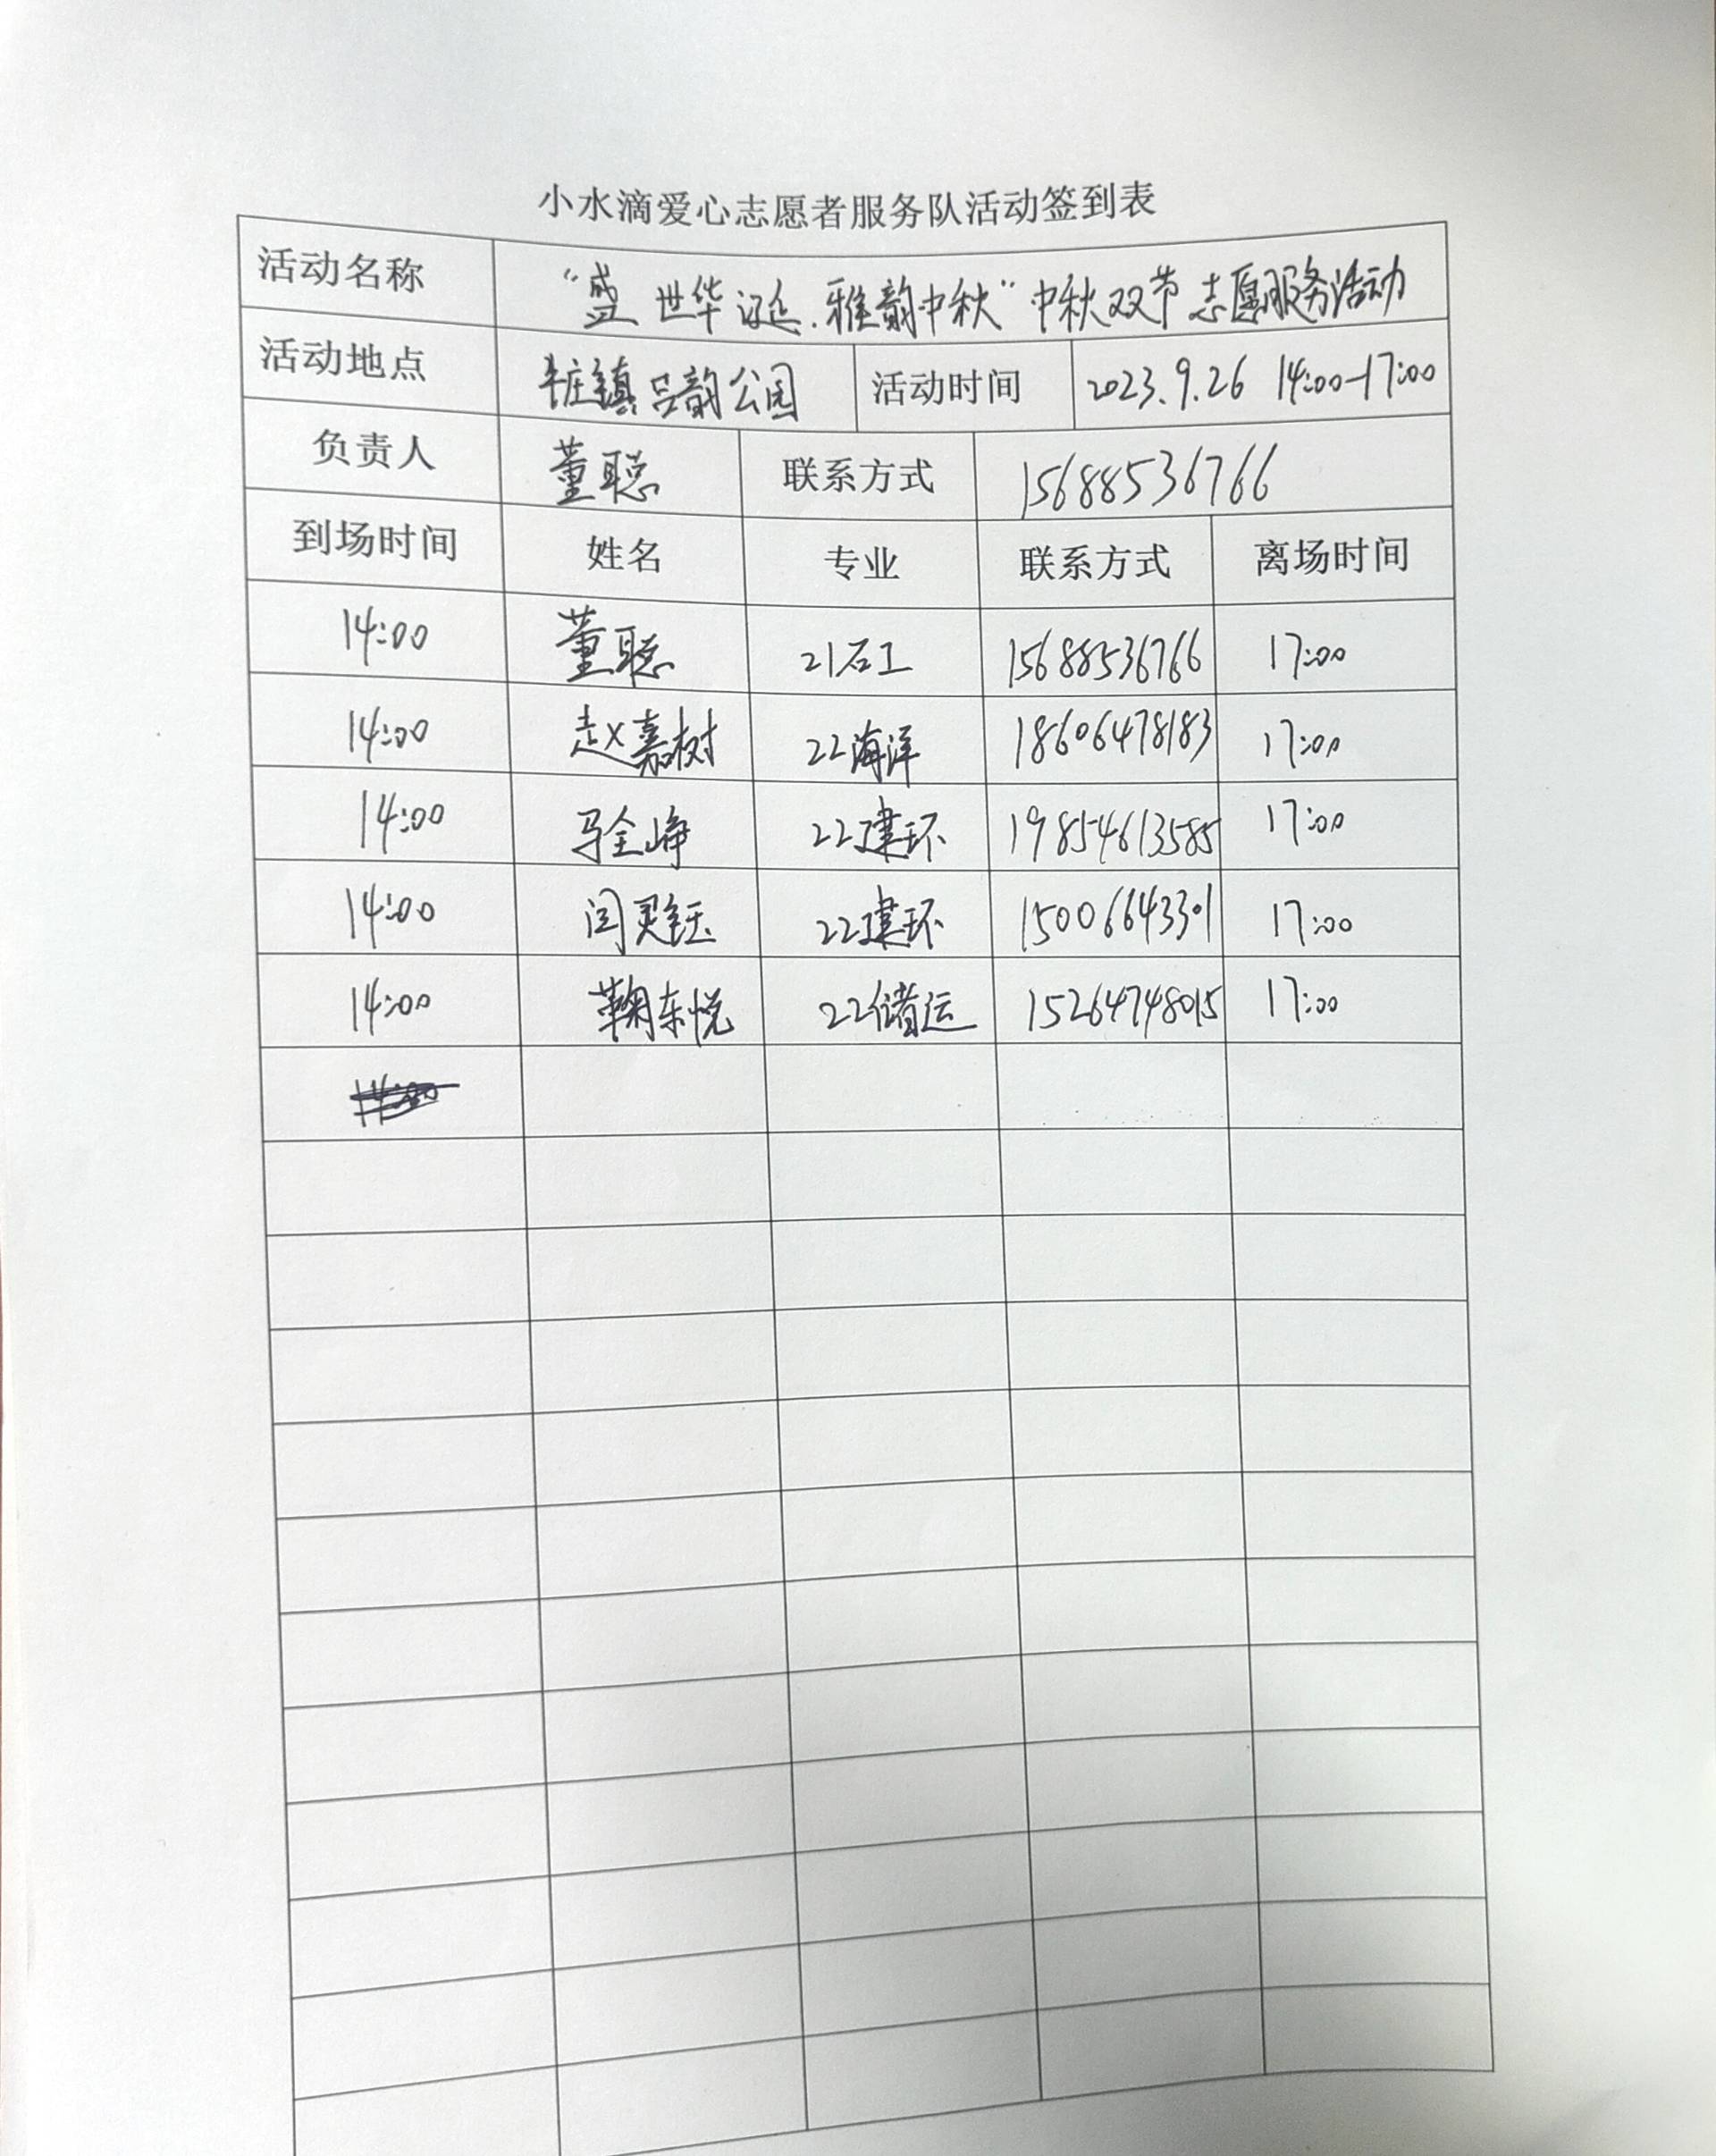 小水滴爱心志愿者服务队活动签到表
活动名称 “盛世华诞.雅韵中秋”中秋双节志愿服务活动
活动地点 牛庄镇吕韵公园 活动时间 2023.9.26 14:00-17:00
负责人 董聪 联系方式 15688536766
到场时间 姓名 专业 联系方式 离场时间
14:00 董聪 21石工 15688536766 17:00
14:00 赵嘉树 22海洋 18606478183 17:00
14:00 马全峥 22建环 19854613585 17:00
14:00 闫灵钰 22建环 15006643301 17:00
14:00 鞠东悦 22储运 15264748015 17:00